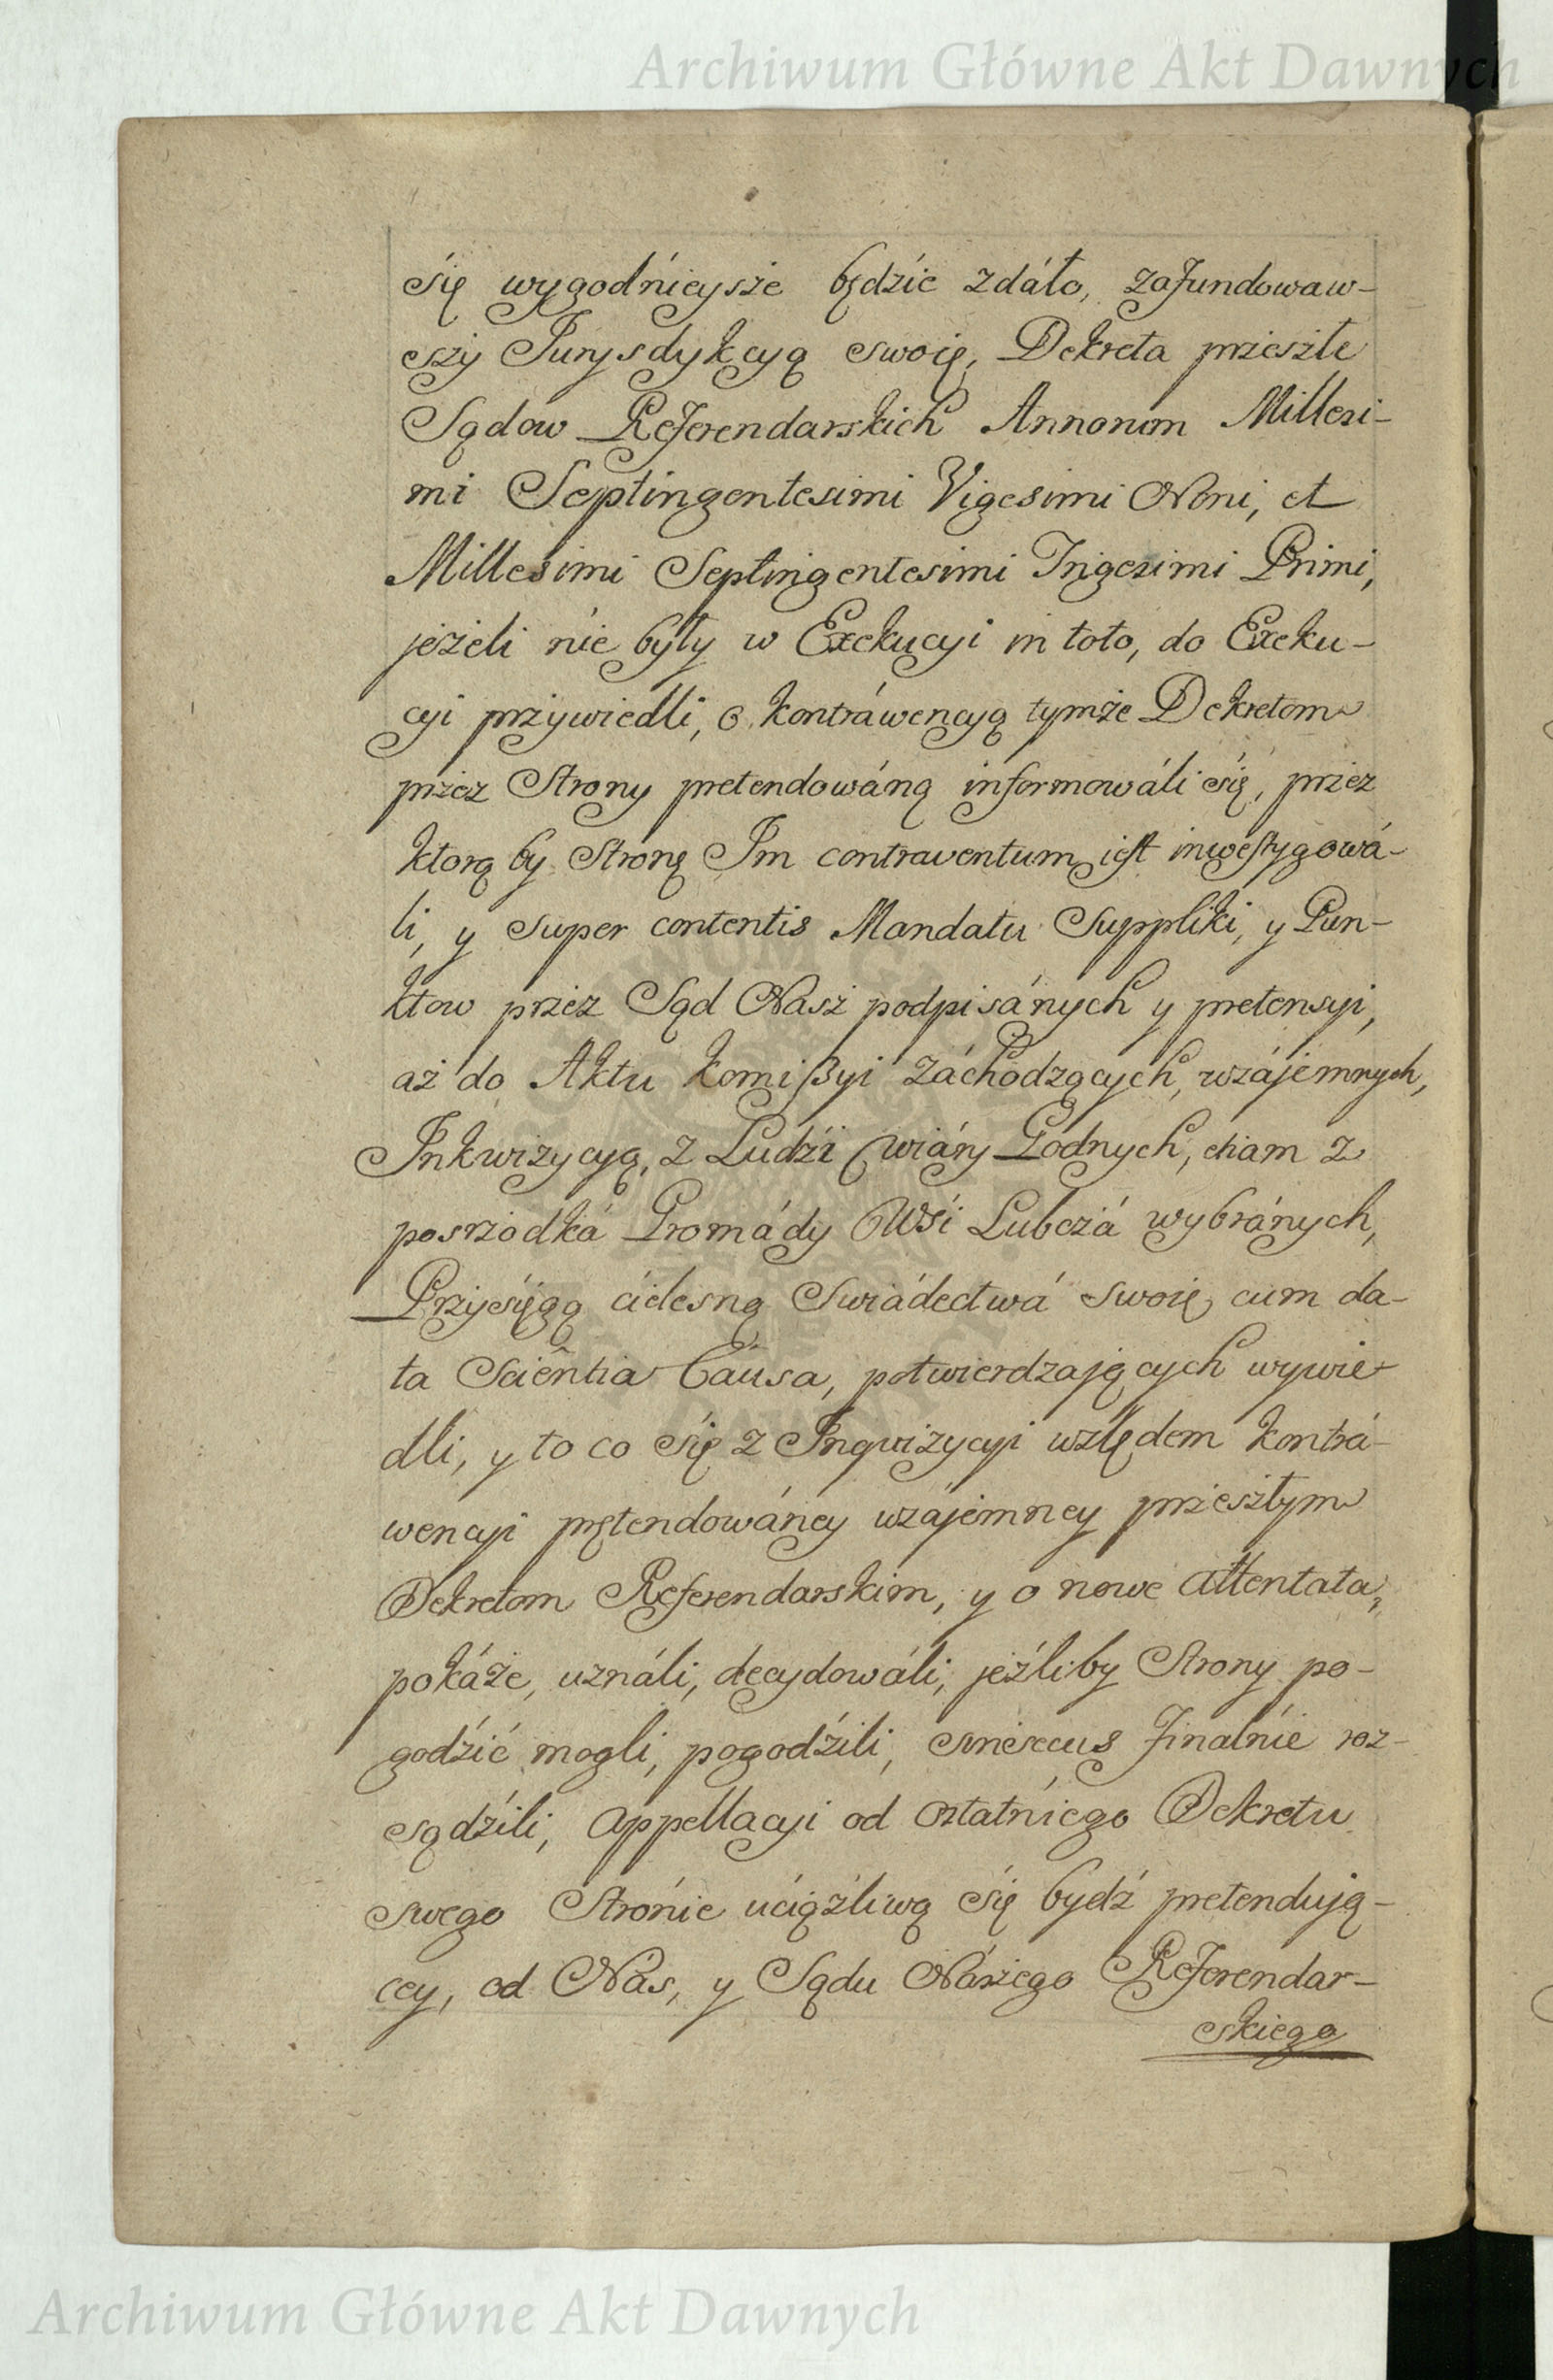 Archiwum Główne Akt Dawnych
się wygodnieysże będźie zdáło, zafundowaw-
szy Jurysdykcyą swoię, Dekreta przeszłe
Sądow Referendarskich Annorum Millesi-
mi Septingentesimi Vigesimi Noni, et
Millesimi Septingentesimi Trigesimi Primi,
jeżeli nie były w Exekucyi in toto, do Exeku-
cyi przywiedli, o kontráwencyą tymże Dekretom
przez Strony pretendowáną informowáli się, przez
ktorą by Stronę Im contraventum jest inwestygowá-
li, y super contentis Mandatu Suppliki, y Pun-
któw przez Sąd Nasz podpisánych y pretensyi,
aż do Aktu Komißyi záchodzących, wzájemnych,
Inkwizycyą, z Ludźi wiáry Godnych, etiam z
posrzodká Gromády Wśi Lubczá wybránych,
Przysięgą ćielesną Swiádectwá swoie, cum da-
ta Sciêntia Causa, potwierdzających wywie-
dli, y to co się z Inqwizycyi względem Kontrá-
wencyi pretendowáney wzájemney przeszłym
Dekretom Referendarskim, y o nowe attentata,
pokáże, uználi, decydowáli, jeźliby Strony po-
godźić mogli, pogodźili, sinesecus finalnie roz-
sądźili, appellacyi od ostatniego Dekretu
swego Stronie ućiążliwą się bydź pretendują-
cey, od Nas, y Sądu Nászego Referendar-
skiego
Archiwum Główne Akt Dawnych